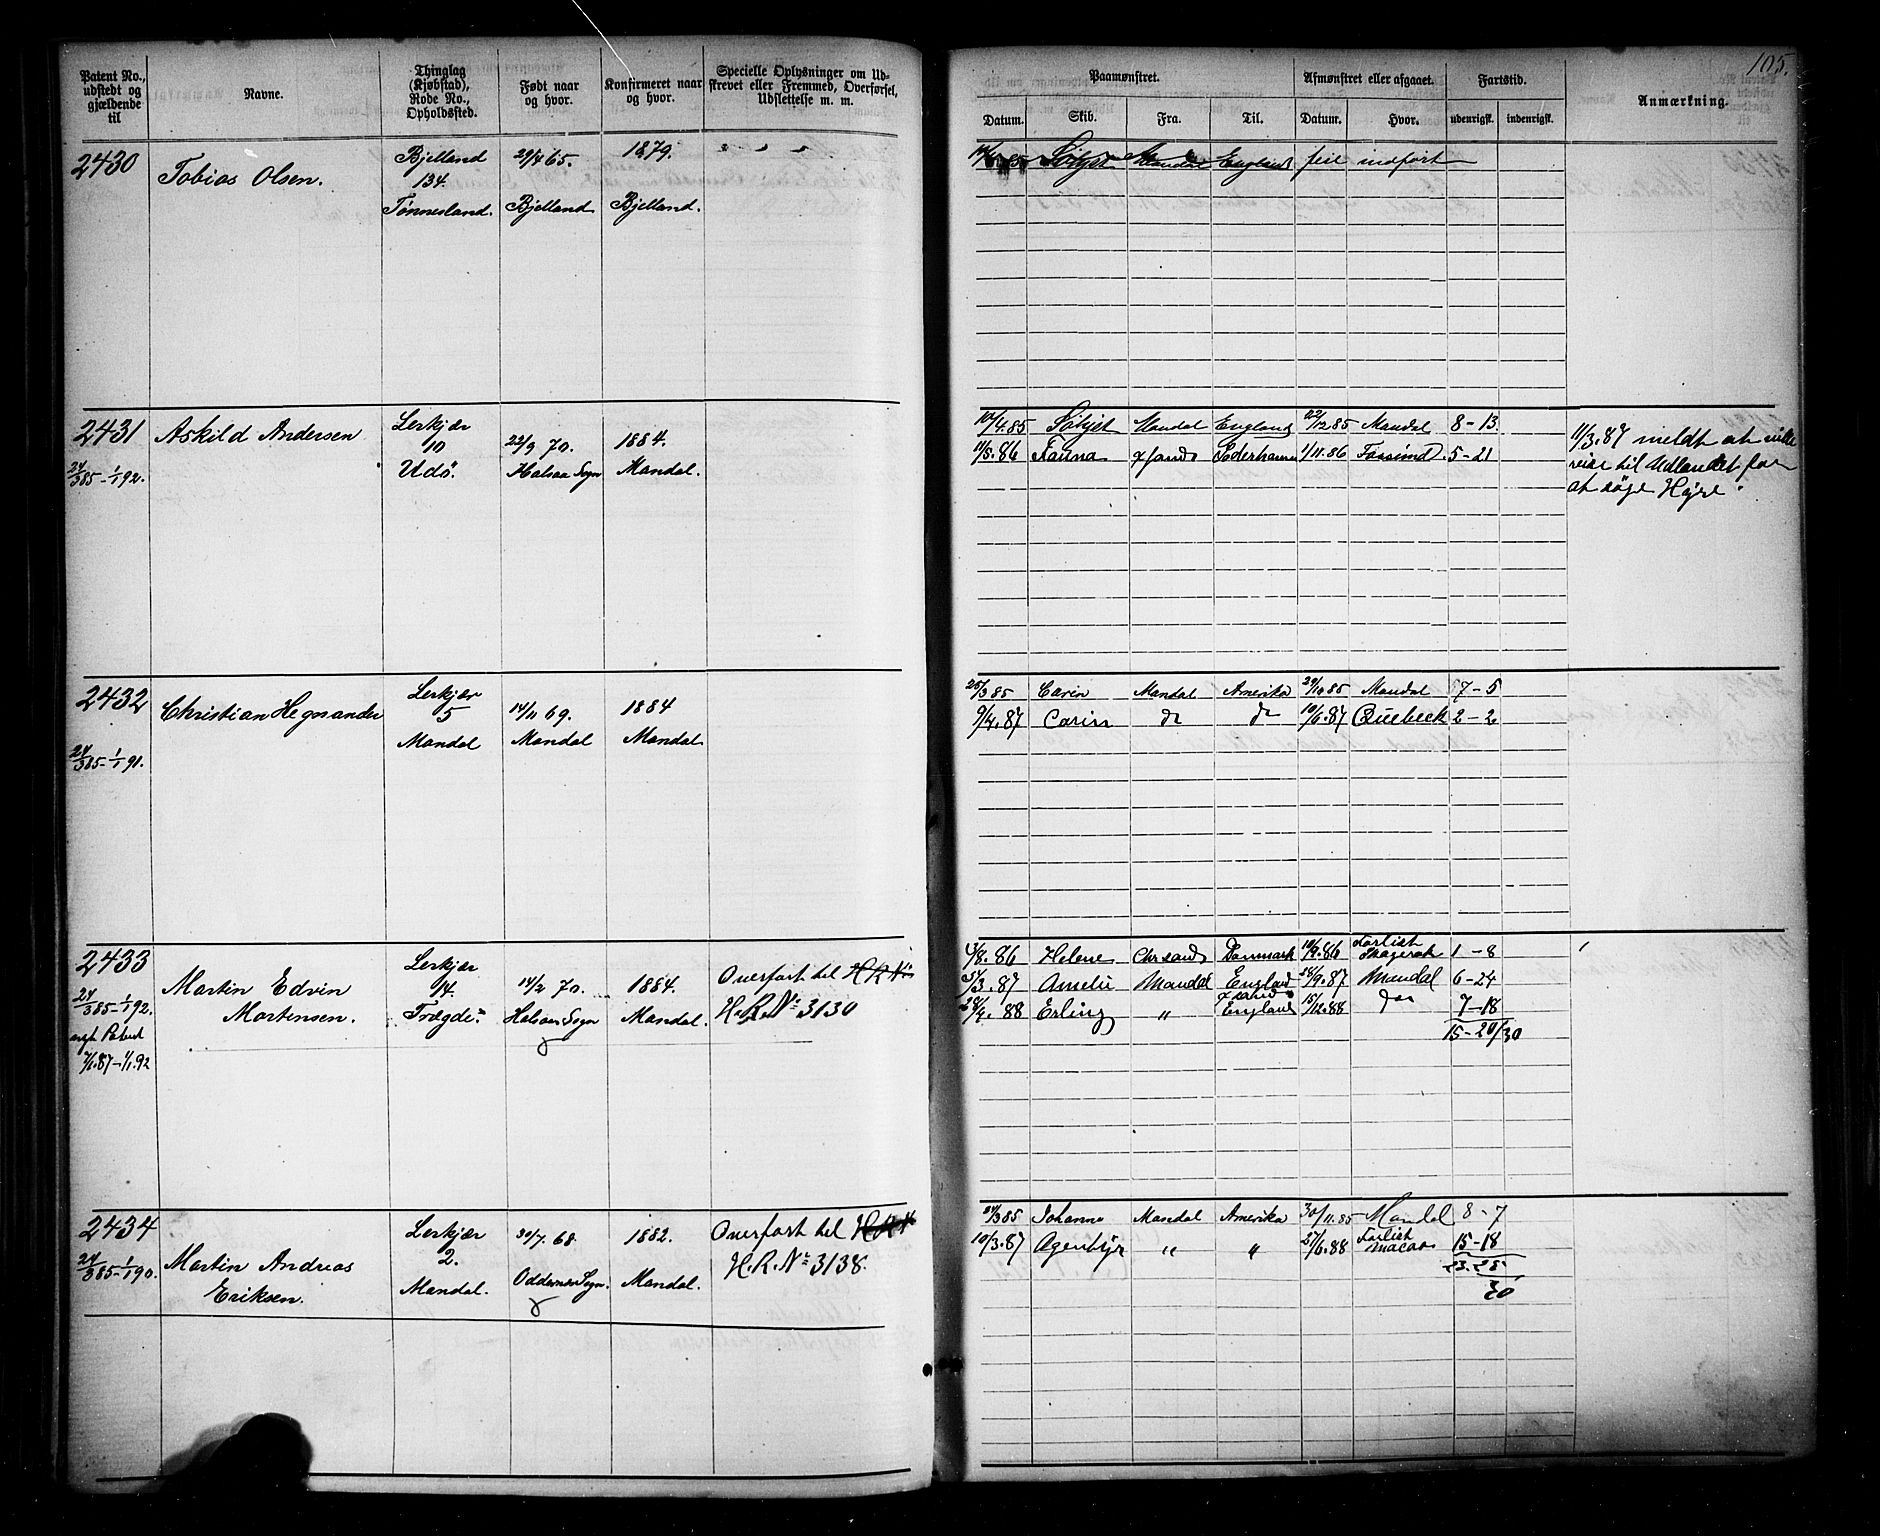 105.
Patent No., udstedt og gjældende til
Navne.
Thinglag (Kjøbstad), Rode No., Opholdssted.
Født naar og hvor.
Konfirmeret naar og hvor.
Specielle Oplysninger om Ud-
skrevet eller Fremmed, Overførsel,
Udslettelse m. m.
Paamønstret.
Afmønstret eller afgaaet.
Fartstid.
Anmærkning.
Datum. Skib. Fra. Til. Datum. Hvor. udenrigsk. indenrigsk.
2430 Tobias Olsen.
Bjelland 134. Tønnesland.
29/4 65. Bjelland
1879. Bjelland.
Mandal England feil indført
2431 Askild Andersen
24/3 85 - 1/1 92.
Lerkjær 10 Udø.
22/9 70. Halsaa Sogn
1884. Mandal.
10/4.85 Mandal England 22/12 85 Mandal 8-13
11/5.86 Fauna Xsand Söderhamn 1/11.86 5-21
11/3.87 meldt at ville
reise til Udlandet for
at søge Hyre.
2432 Christian Hegnander
24/3 85 - 1/1 91.
Lerkjær 5 Mandal
14/11 69. Mandal
1884 Mandal
25/3 85 Carin Mandal Amerika 29/10 85 Mandal 7-5
9/4.87 Carin do do 10/6.87 Quebeck 2-2
2433 Martin Edvin
Mortensen.
24/3 85 - 1/1 92.
nyt Patent
7/1.87 - 1/1.92
Lerkjær 14. Trægde
14/2 70. Halsaa Sogn
1884. Mandal.
Overført til H R N
H.R. No 3130
13/8.86 Helene Chrsand Danmark 10/9.86 Forlist Skagerak 1-8
3.87 Amelie Mandal England 9.87 Mandal 6-24
88 Erling " Xsand England 15/12.88 do 7-18
15-20/30
2434 Martin Andreas
Eriksen.
24/3 85 - 1/1 90.
Lerkjær 2. Mandal.
30/7. 68. Oddernes Sogn.
1882. Mandal.
Overført til
H.R. No 3138.
24/3 85 Johanne Mandal Amerika 30/11.85 Mandal 8-7
10/3.87 " " 27/6.88 Forlist Macao 15-18
23.25
30